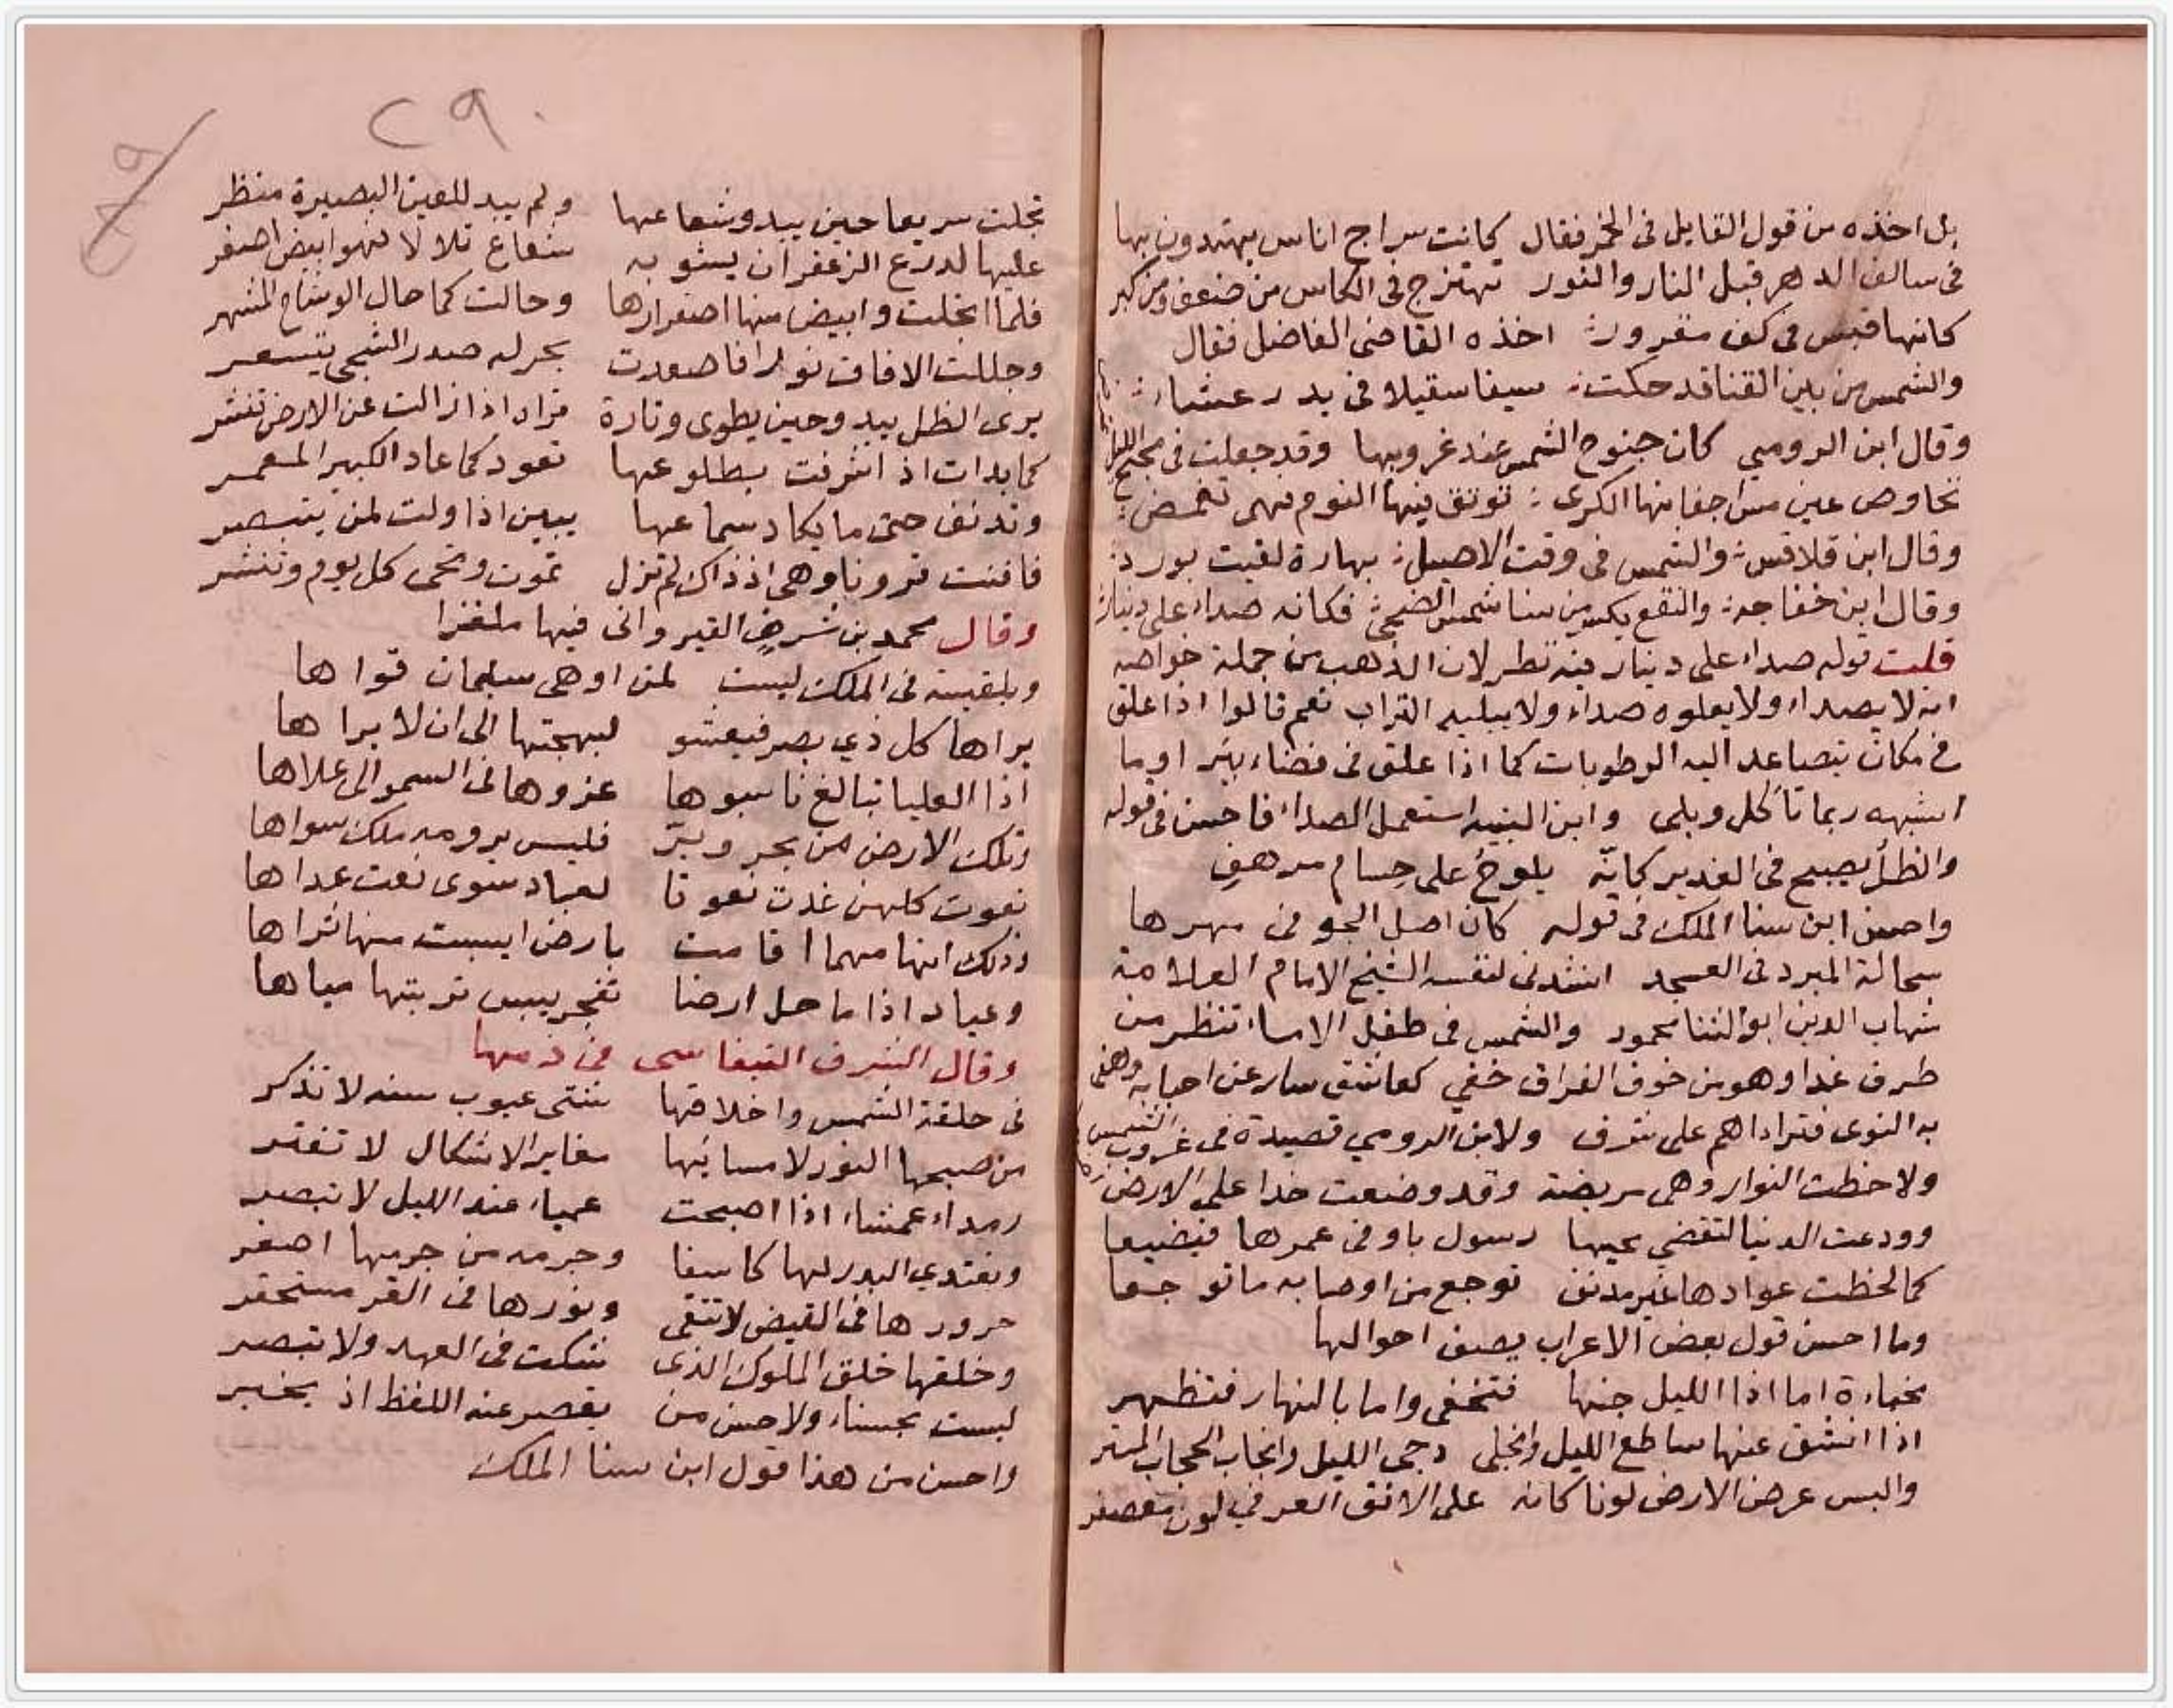 بل اخذه من قول القايل فى الخمر فقال كانت سراج اناس يهتدون بها
فى سالف الدهر قبل النار والنور تهتزج فى الكاس من ضعف ومن كبر
كانها قبس فى كف مقرور اخذه القاضى الفاضل فقال
والشمس من بين القنا قد حكت سيفا سقيلا فى يد رعشاء
وقال ابن الرومي كان جنوح الشمس عند غروبها وقد جعلت فى مجنح الليل
تخاوص عين مس اجفانها الكرى ترنق فيها النوم فهى تغمض
وقال ابن قلاقس والشمس فى وقت الاصيل بهارة لفيت بورد
وقال ابن خفاجه والنقع يكسر من سنا شمس الضحى فكانه صداء على دينار
قلت قوله صداء على دينار فيه نظر لان الذهب من جملة خواصه
انه لا يصداء ولا يعلوه صداء ولا يبليه التراب نعم قالوا اذا علق
فى مكان يتصاعد اليه الرطوبات كما اذا علق فى فضاء بير او ما
اشبهه ربما تأكل وبلى وابن النبيه استعمل الصداء فاحسن فى قوله
والظل يصبح فى الغدير كانه يلوح على حسام مرهف
واحسن ابن سنا الملك فى قوله كان اصل الجو فى مهرها
سحالة المبرد فى العسجد انشدنى لنفسه الشيخ الامام العلامة
شهاب الدين ابو الثنا محمود والشمس فى طفل الامساء تنظر من
طرف غدا وهو من خوف الفراق خفي كعاشق سار عن احبابه وهفى
به النوى فتراداهم على شرف ولابن الرومي قصيدة فى غروب الشمس
ولاحظت النوار وهى مريضة وقد وضعت خدا على الارض
وودعت الدنيا لتقضي نحبها رسول باو فى عمرها فيضيعا
كما لحظت عوادها عين مدنف توجع من اوصابه ما توجعا
وما احسن قول بعض الاعراب يصف احوالها
مخباءة اما اذا الليل جنها فتخفى واما بالنهار فتظهر
اذا انشق عنها ساطع الليل وانجلى دجى الليل وانجاب الحجاب المستر
والبس عرض الارض لونا كانه على الافق الغرفي لون معصفر
٢٩٠
تجلت سريعا حين يبدو شعاعها ولم يبد للعين البصيرة منظر
عليها لدرع الزعفران يشوبه شعاع تلالا فهو ابيض اصفر
فلما انجلت وابيض منها اصفرارها وحالت كما حال الوشاح المشهر
وجللت الافاق نورا فاصعدت بحر له صدر الشجى يتسعر
يرى الظل يبدو حين يطوى وتارة تراد اذا زالت عن الارض تنشر
كما بدات اذ اشرقت بطلوعها تعود كما عاد الكبير المعمر
وتدنف حتى ما يكاد سماعها يبين اذا ولت لمن يتبصر
فافنت قرونا وهى اذ ذاك لم تزل تموت وتحى كل يوم وتنشر
وقال محمد بن شرف القيروانى فيها ملغزا
وبلقيسة فى الملك ليست لمن اوهى سليمان قواها
يراها كل ذي بصر فيعشو لبهجتها الى ان لا يراها
اذا العليا تبالغ ناسبوها عزوها فى السمو الى علاها
وتلك الارض من بحر وبر فليس يرومه ملك سواها
نعوت كلهن غدت نعوتا لعباد سوى نعت عداها
وذلك انها مهما اقامت بارض ايبست منها ثراها
وعباد اذا ما حل ارضا تفجر يبس تربتها مياها
وقال الشرف التيفاسى فى ذمها
فى خلقة الشمس واخلاقها شتى عيوب سنه لا تذكر
من صبحها النور لا مسائها مغاير الاشكال لا تفتر
رمداء عمشاء اذا اصبحت عمياء عند الليل لا تبصر
ويغتدي البدر لها كاسفا وجرمه من جرمها اصغر
حرورها فى القيض لا تتقى ونورها فى القر مستحقر
وخلقها خلق الملوك الذى ينكث فى العهد ولا تبصر
ليست بحسناء ولا حسن من يقصر عنه اللفظ اذ يخبر
واحسن من هذا قول ابن سنا الملك